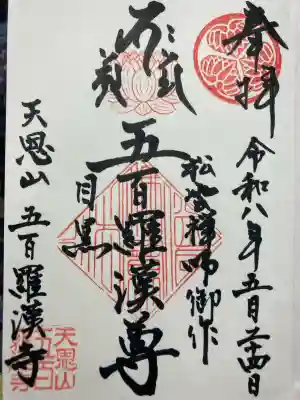 奉拝
令和八年五月二十四日
松雲禅師御作
五百羅漢尊
目黒
天恩山 五百羅漢寺
天恩山
五百羅漢寺